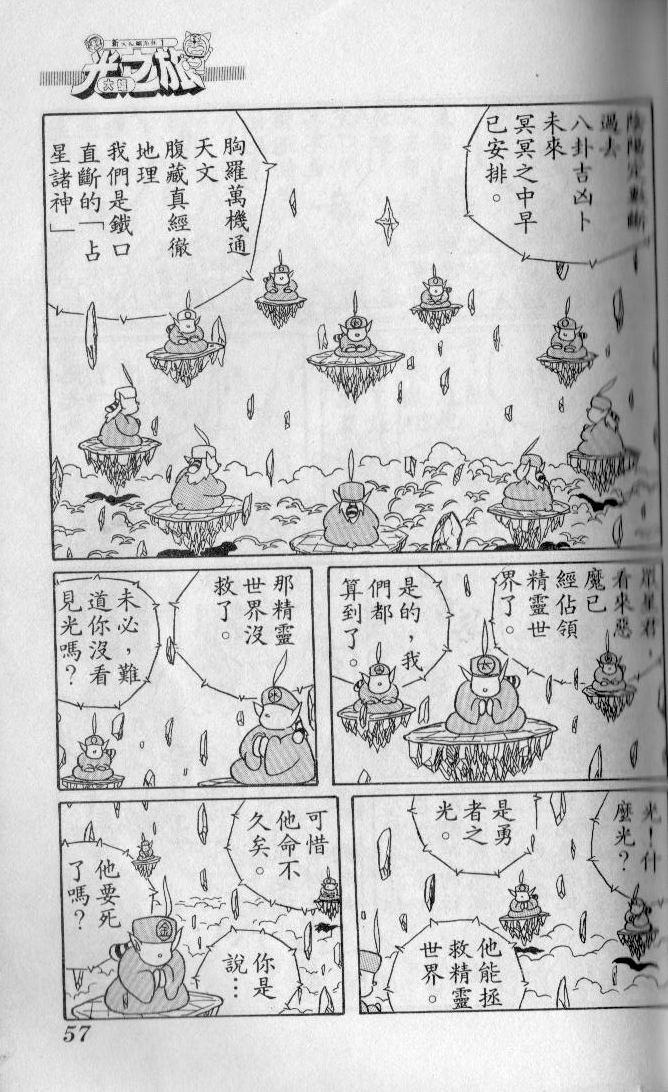 光之旅
大結
陰陽定點斷
過去
八卦吉凶卜
未來
冥冥之中早
已安排。
胸羅萬機通
天文
腹藏真經徹
地理
我們是鐵口
直斷的「占
星諸神」
眾星君，
看來惡
魔已
經佔領
精靈世
界了。
是的，我
們都
算到了。
那精靈
世界沒
救了。
未必，難
道你沒看
見光嗎？
光！什
麼光？
是勇
者之
光。
他能拯
救精靈
世界。
可惜
他命不
久矣。
你是
說…
他要死
了嗎？
金
57